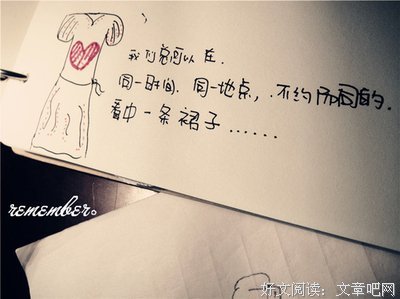 我们总可以在.
同一时间. 同一地点, 不约而同的.
看中一条裙子......
remember。
好文阅读：文章吧网